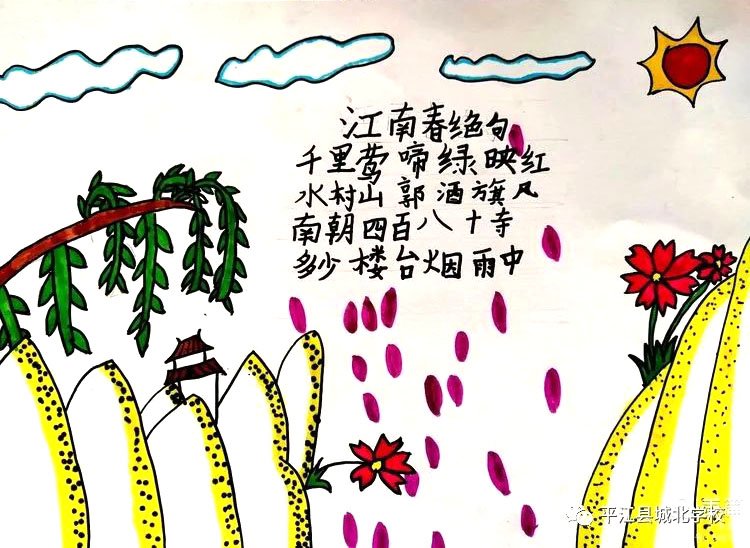 江南春绝句
千里莺啼绿映红
水村山郭酒旗风
南朝四百八十寺
多少楼台烟雨中
平江县城北学校